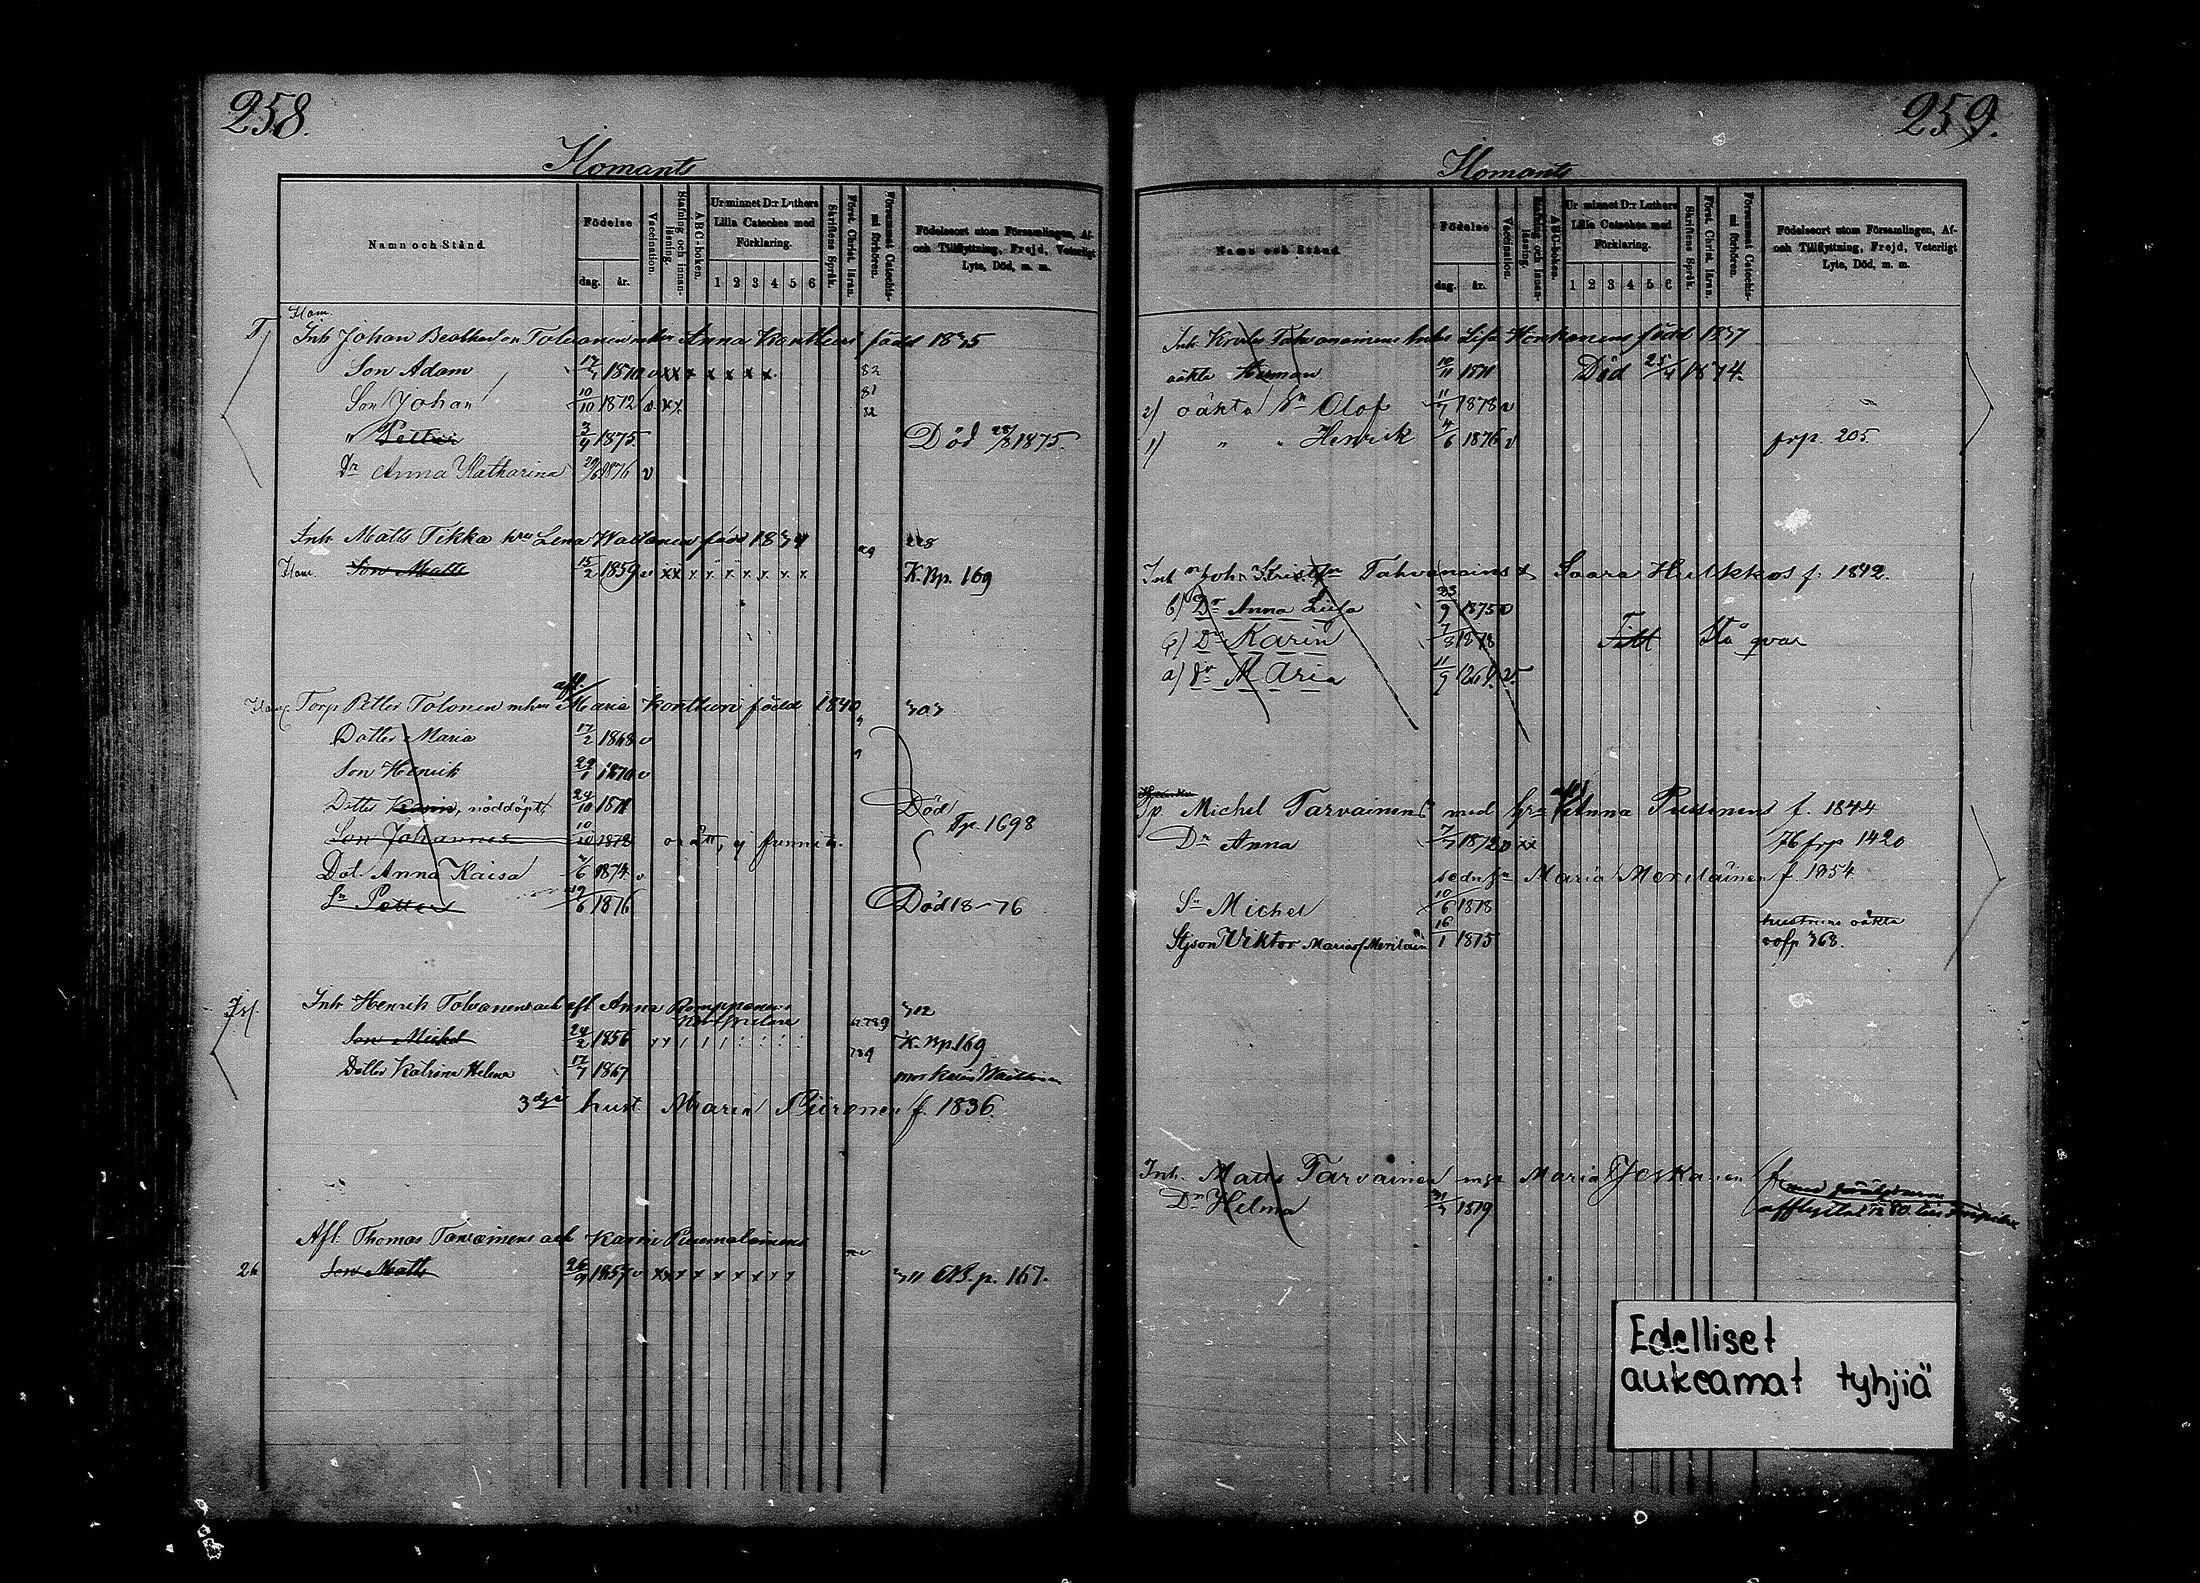 258.
Ilomants
Namn och Stånd.
Födelse
dag. år.
Vaccination.
Stafning och innanläsning.
ABC-boken.
Ur minnet D:r Luthers Lilla Cateches med Förklaring.
1 2 3 4 5 6
Skriftens Språk.
Först. Christ. läran.
Försummat Catechismi förhören.
Födelseort utom Församlingen, Af- och Tillflyttning, Frejd, Veterligt Lyte, Död, m. m.
Ilom.
Inh Johan Tolvanen Anna född 1835
Son Adam 17/1 1870 v x x x x x x x x 82
Son Johan 10/10 1872 v x x 81 82
" Petter 3/4 1875 Död 1875.
Dr Anna Katharina 1876 v
Inh Matts Tikka hru Lena född 1834
Ilom. Son Matts 15/2 1859 v x x x x x x x x K. Bp. 169
afl.
Torp Petter Tolonen Maria Konttin född 1840 303
Dotter Maria 17/2 1868 v
Son Henrik 29/1 1870 v
Dotter Karin, nöddöpt, 24/10 1871 Död
Tp. 1698
Son Johannes 10/10 1872 orätt, ej funnits.
Dot. Anna Kaisa 6 1874 v
Sn Petter 19/6 1876 Död 18-76
Inh Henrik Tolvanens och afl Anna Romppanens 302
Son Michel 24/2 1856 K. Bp. 169
Dotter Katrina Helena 17/7 1867
3dje hust. Maria Piironen f. 1836.
Afl. Thomas Tarvainens och Karin Puumalainens
26 Son Matts 26/9 1857 v x x x x x x x x 311 NB. p. 167.
259.
Ilomants
Namn och Stånd.
Födelse
dag. år.
Vaccination.
Stafning och innanläsning.
ABC-boken.
Ur minnet D:r Luthers Lilla Cateches med Förklaring.
1 2 3 4 5 6
Skriftens Språk.
Först. Christ. läran.
Försummat Catechismi förhören.
Födelseort utom Församlingen, Af- och Tillflyttning, Frejd, Veterligt Lyte, Död, m. m.
Inh Tahvanainens Lisa Honkanens född 1837
oäkta Herman 10/11 1871 Död 25/4 1874.
2) oäkta Sn Olof 11/7 1878 v
1) " " Henrik 4/6 1876 v frp. 205
Inh Joh. Tahvanainens Saara Hulkkos f. 1842.
b) Dr Anna Liisa 23/9 1875 v
c) Dr Karin 7/8 1878 Stå qvar
a) dr Maria 11/9 1869. v.
Tp Michel Tarvainens med hru Anna Pussinens f. 1844
Dr Anna 7/7 1872 v x x 76 frp 1420
sedn hu Maria Meriläinen f. 1854
Sn Michel 10/6 1878
Stjson Viktor Mariasf Meriläin 16/1 1875 hustruns oäkta
368.
Inh. Matts Tarvainen Maria Jeskanen f.
Dr Helma 1879 afflyttat 1880
Edelliset
aukeamat tyhjiä